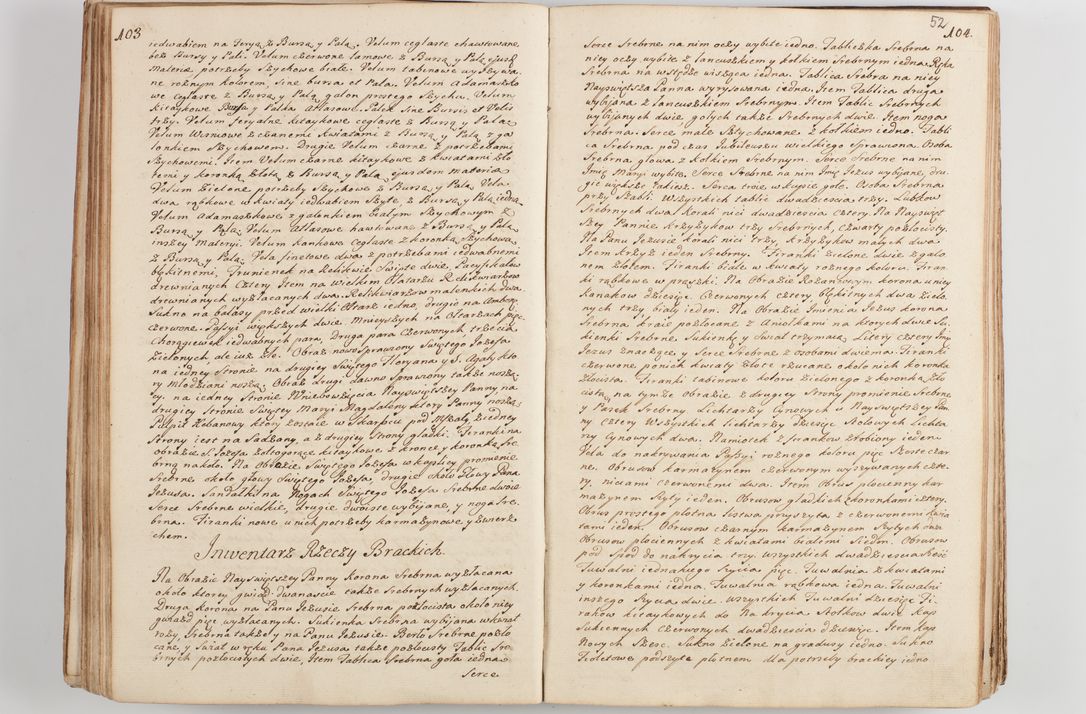 103
iedwabiem na Feryą z Bursą y Palą. Velum ceglaste chawtowane
bez Bursy y Pali. Velum czerwone lamowe z Bursą y Palą ejusd.
Materiæ potrzeby Szychowe białe. Velum tabinowe wyszywa,
ne rożnym kolorem, sine bursa et Pala. Velum Adamaszko
we ceglaste z Bursą y Palą galon prostego Szychu. Velum
kitaykowe Bursa y Palka Atłasowe. Palek sine Bursis et Velis
trzy. Velum feryalne kitaykowe ceglaste z Bursą y Palą
Velum Wzniowe z czanemi kwiatami z Bursą y Palą z ga
lonkiem Szychowem. Drugie Velum czarne z potrzebami
Szychowemi. Item Velum czarne kitaykowe z kwiatami zło
temi y koronką złotą z Bursą y Palą ejusdem materiæ
Velum zielone potrzeby Szychowe z Bursą y Palą Vela
dwa rąbkowe w kwiaty iedwabiem Szyte, z Bursą y Palą iedną
Velum Adamaszkowe z galonkiem białym Szychowym z
Bursą y Palą Velum Atłasowe hawtowane z Bursą y Palą
inszey materyi. Velum kankowe Ceglaste z koronką Szychową
z Bursą y Palą. Vela finetowe dwa z potrzebami iedwabnemi
błękitnemi. Trunienek na Relikwie Swięte dwie, Pacyfikałow
drewnianych cztery Item na Wielkim Ołtarzu Relikwiarzow
drewnianych wyzłacanych dwa. Relikwiarzow malenkich dwa
Sukno na balasy przed wielki Ołtarz iedno, drugie na Ambonę
czerwone. Pasyi większych dwie. Mnieyszych na Ołtarzach pięc
Chorągiewek iedwabnych para, Druga para Czerwonych trzecia
zielonych ale iuż złe. Obraz nowo Sprawiony Swiętego Jozefa
na iedney Stronie na drugiey Swiętego Floryana y S. Agaty, kto
ry Młodziani noszą. Obraz drugi dawno Sprawiony także noszą
cy, na iedney Stronie Wniebowzięcia Nayswiętszey Panny na
drugiey Stronie Swiętey Maryi Magdaleny ktory Panny noszą
Pulpit Hebanowy ktory zostaie w Skarbcu pod Mszały, z iedney
Strony iest na Sadzony, a z drugiey Strony gładki. Firanki na
obrazie S. Jozefa żołtogorące kitaykowe z kronce, y koronką Sre
brną nakoło. Na Obrazie Swiętego Jozefa w kaplicy promienie
Srebrne około głowy Swiętego Jozefa, drugie około głowy Pana
Jezusa. Sandałki na Nogach Swiętego Jozefa Srebrne dwoie
Serce Srebrne wielkie, drugie dwoiste wybijane, y noga Sre,
brna. Firanki nowe u nich potrzeby karmazynowe y zwierz
chem.
Inwentarz Rzeczy Brackich.
Na Obrazie Nayswiętszey Panny Korona Srebrna wyzłacana
około ktorey gwiazd dwanascie także Srebrnych wyzłacanych.
Druga korona na Panu Jezusie Srebrna pozłocista około niey
gwiazd pięc wyzłacanych. Sukienka Srebrna wybijana w kwiat
roży, Srebrna także y na Panu Jezusie. Berło Srebrne pozło
cane, y Swiat w ręku Pana Jezusa także pozłocisty Tablic Sre
brnych pozłocistych dwie, Item Tablica Srebrna goła iedna
Serce
52
104
Serce Srebrne na nim oczy wybite iedno. Tabliczka Srebrna na
niey oczy wybite z łancuszkiem y kołkiem Srebrnym iedna. Rączka
Srebrna na wstędze wisząca iedna. Tablica Srebrna na niey
Nayswiętsza Panna wyrysowana iedna. Item Tablica druga
wybijana z łancuszkiem Srebrnym. Item Tablic Srebrnych
wybijanych dwie, gołych także Srebrnych dwie. Item noga
Srebrna. Serce małe Sztychowane z kołkiem iedno. Tabli
ca Srebrna pod czas Jubileuszu wielkiego Sprawiona Osoba
Srebrna głowa z kołkiem Srebrnym. Serce Srebrne na nim
Imię Maryi wybite. Serce Srebrne na nim Imię Jezus wybijane, dru
gie większe takiesz. Serca troie w kupie gołe. Osoba Srebrna
przy Szabli. Wszystkich tablic dwadziescia trzy. Lubkow
Srebrnych dwa korali nici dwadziescia cztery. Na Nayswięt
szey Pannie krzyżykow trzy Srebrnych, czwarty pozłocisty.
Na Panu Jezusie korali nici trzy, krzyżykow małych dwa
Item krzyż ieden Srebrny. Firanki zielone dwie z galo
nem złotem. Firanki białe w kwiaty rożnego koloru. Firan
ki rąbkowe w prążki. Na Obrazie Rożancowym korona u niey
kanakow dziesięc. Czerwonych cztery błękitnych dwa zielo
nych trzy biały ieden. Na Obrazie Imienia Jezus korona
Srebrna kraie pozłocane z Aniołkami na ktorych dwie Su,
kienki Srebrne. Sukienkę y Swiat trzymaią. Litery cztery Imię
Jezus znaczące y Serce Srebrne z osobami dwiema. Firanki
czerwone, ponich kwiaty złote rzucane około nich koronka
złocista. Firanki tabinowe koloru zielonego z koronką zło
cistą na tymże Obrazie z drugiey Strony promienie Srebrne
y Pasek Srebrny. Lichtarzy Cynowych u Nayswiętszey Pan
ny Cztery Wszystkich Lichtarzy dziesięc Stołowych Lichta
rzy Cynowych dwa. Namiotek z firankow zrobiony ieden
Vela do nakrywania Pasyi rożnego koloru pięc Szoste czar
ne. Obrusow karmazynem czerwonym wyszywanych czte
ry, nićami czerwonemi dwa. Item Obrus płocienny kar
mazynem Szyty ieden. Obrusow gładkich z koronkami cztery.
Obrus prostego płotna listwa przyszyta z czerwonemi kwia
tami ieden. Obrusow czarnym karmazynem Szytych dwa
Obrusow płociennych z kwiatami białemi Siedm. Obrusow
pod Spod do nakrycia trzy, wszystkich dwadziescia Sześć
Tuwalni iednakiego Szycia pięc. Tuwalnia z kwiatami
y koronkami iedna. Tuwalnia rąbkowa iedna. Tuwalni
inszego Szycia dwie. Wszystkich Tuwalni dziesięc Fi
rakow kitaykowych do Nakrycia Stołkow dwie kap
Sukiennych Czerwonych dwadziescia dziewięc. Item kap
Nowych Szesc. Sukno zielone na gradusy iedno. Sukno
Fioletowe podszyte płotnem dla potrzeby brackiey iedno